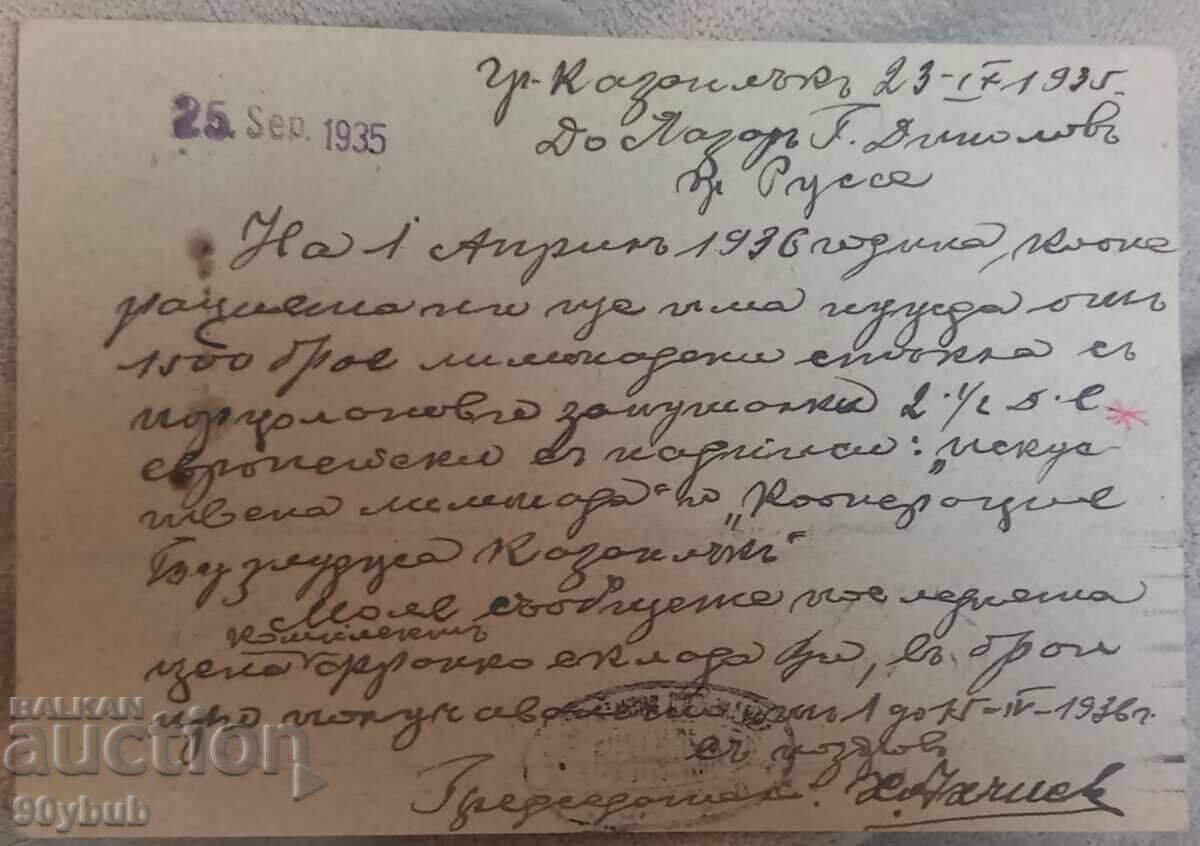 гр. Казанлъкъ 23-IX 1935.
25. Sep. 1935
До Лазаръ Г. Диколовъ
гр. Руссе
На 1 Априлъ 1936 година, коопе
рацията ни ще има нужда отъ
1500 броя лимонадени стъкла съ
порцоланови запушалки 2 1/2 д.е.
европейски съ надписи: "искус
твена лимонада" и "Кооперация
Бузлуджа Казанлъкъ"
Моля съобщете последната
комплектъ
цена франко склада Ви, въ брой
при получаване отъ 1 до 15-IV-1936 г.
съ поздрав
Председател:
BALKAN
auction
90ybub